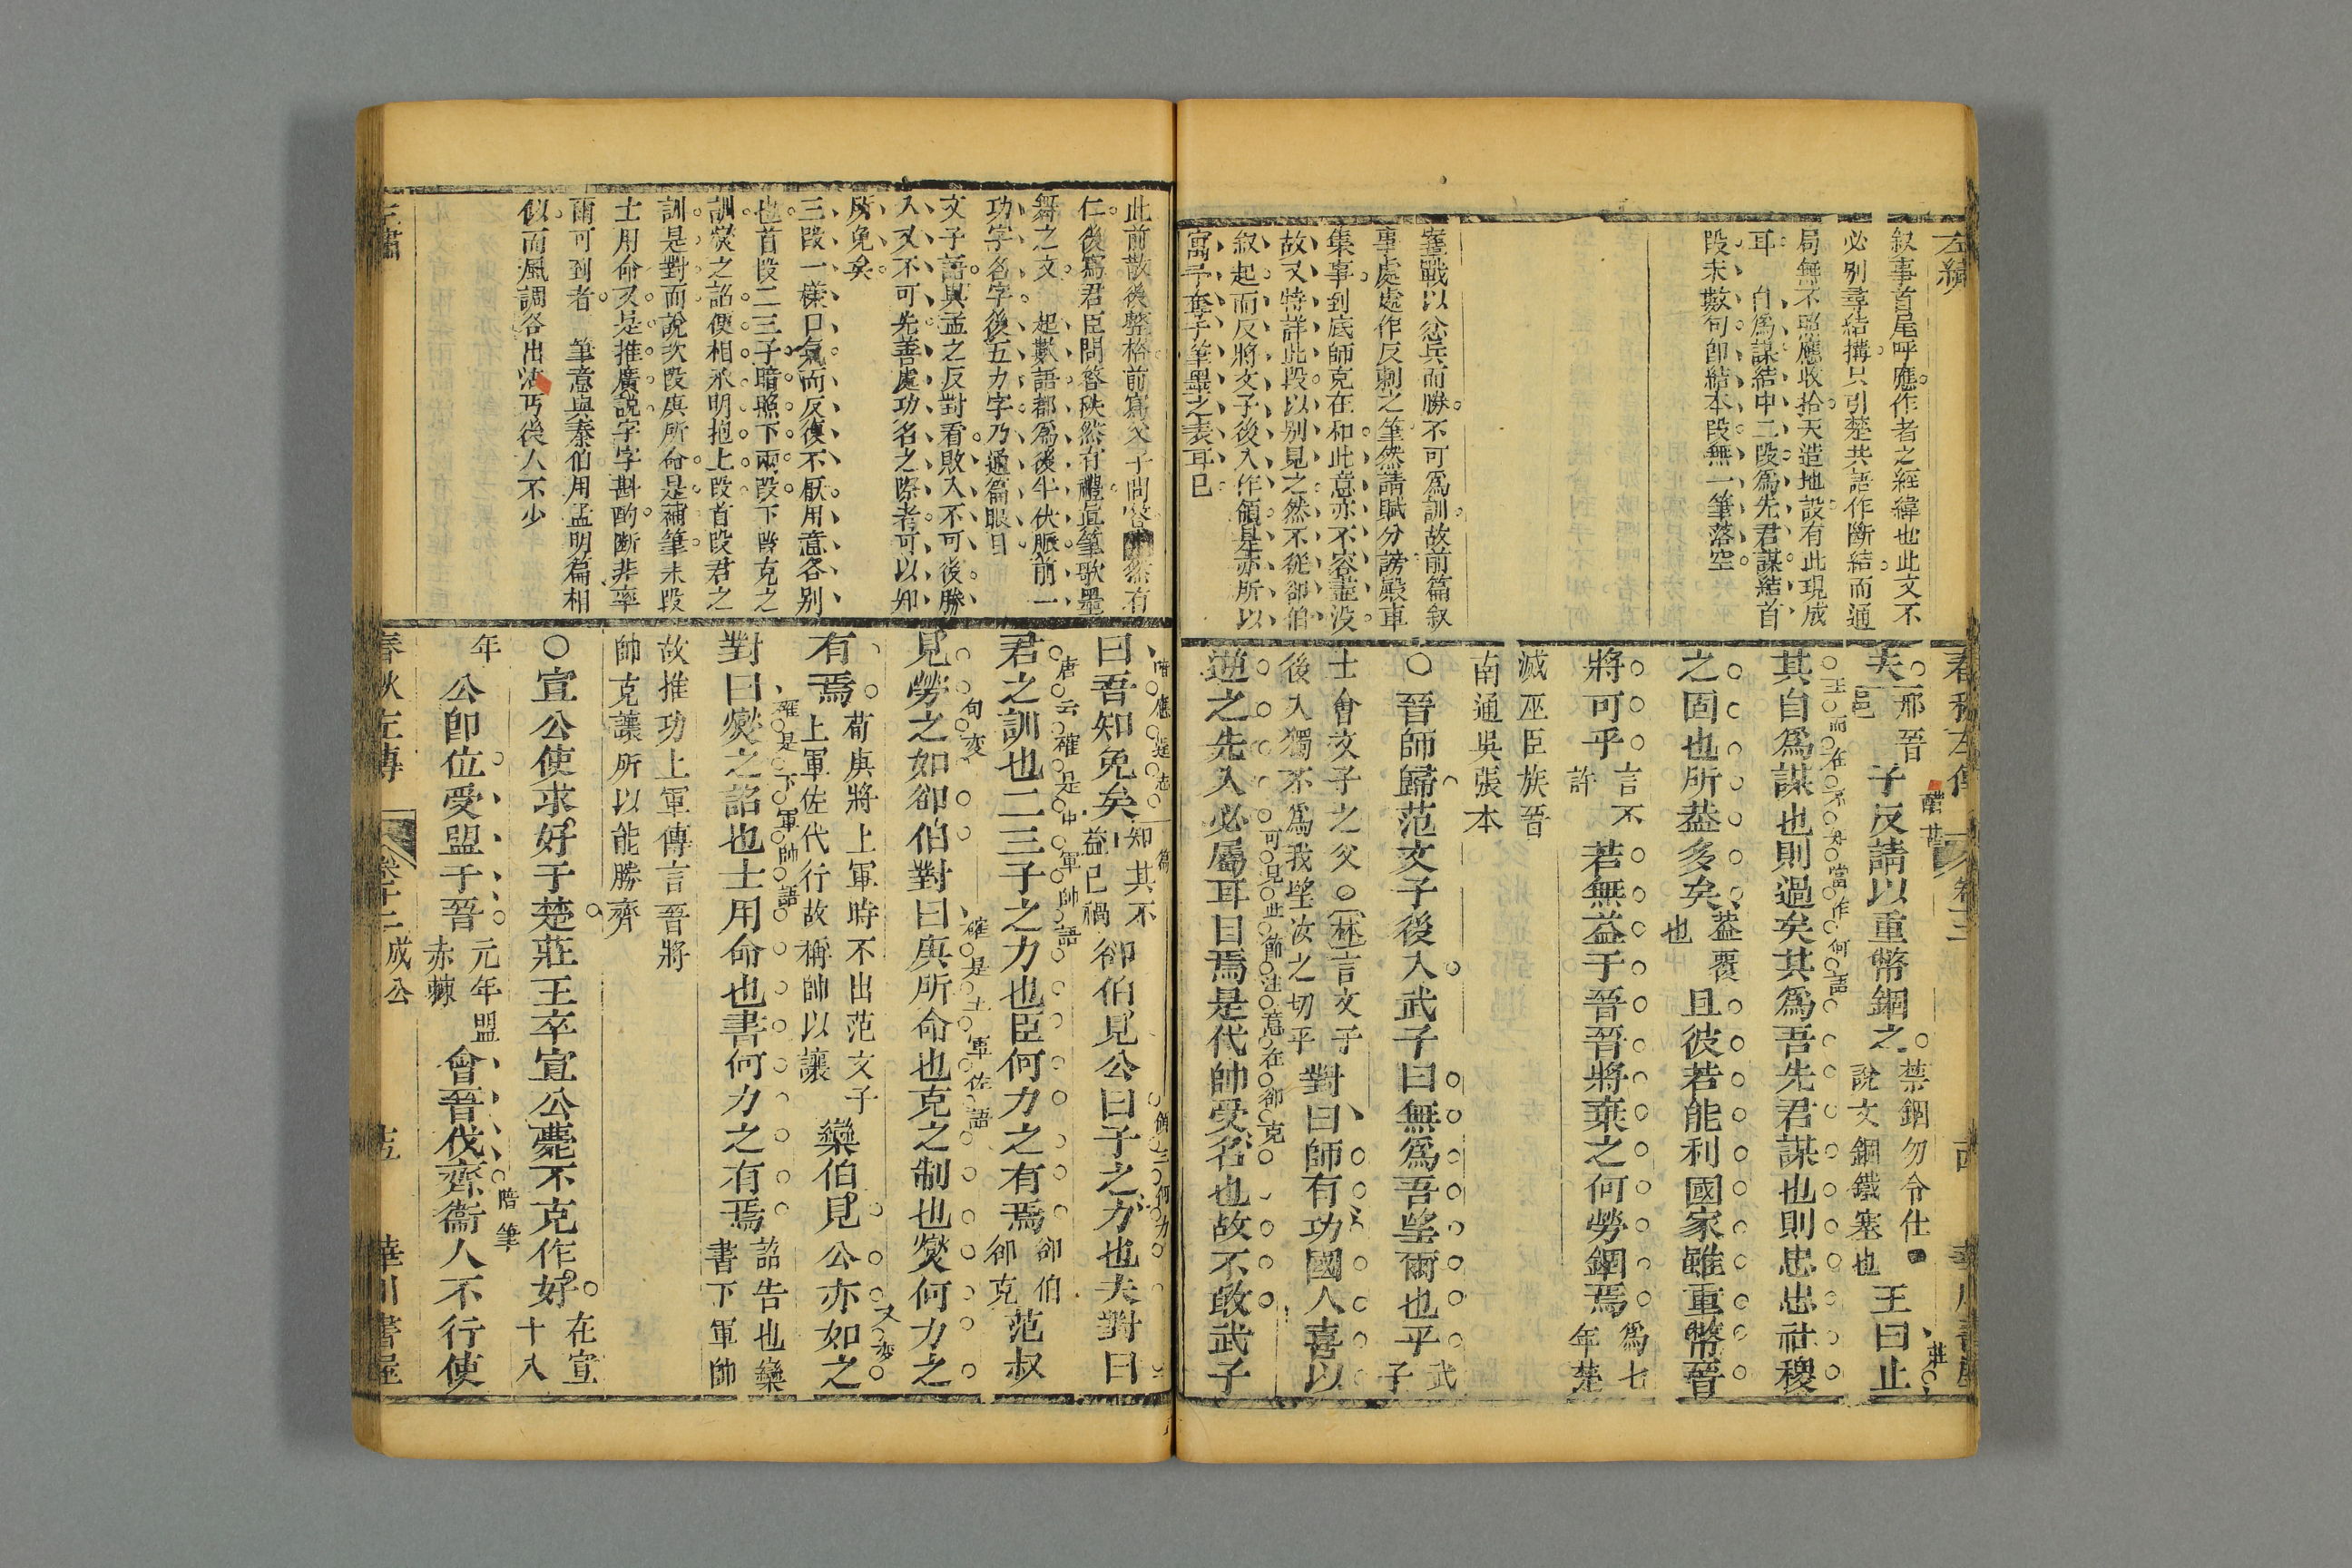 左繡
叙事首尾呼應作者之經緯也此文不
必別尋結搆只引楚共語作斷結而通
局無不照應收拾天造地設有此現成
耳　自爲謀結中二段爲先君謀結首
段末數句卽結本段無一筆落空
鞌戰以忿兵而勝不可爲訓故前篇叙
事處處作反刺之筆然請賦分謗殿車
集事到底師克在和此意亦不容盡沒
故又特詳此段以別見之然不從郤伯
叙起而反將文子後入作領是亦所以
寓予奪于筆墨之表耳已
春秋左傳
卷十二
華川書屋
夫
邢晉
邑
子反請以重幣錮之
禁錮勿令仕
說文錮鐵塞也
王曰止
其自爲謀也則過矣其爲吾先君謀也則忠忠社稷
之固也所葢多矣
葢覆
也
且彼若能利國家雖重幣晉
將可乎
言不
許
若無益于晉晉將棄之何勞錮焉
爲七
年楚
滅巫臣族晉
南通吳張本
○晉師歸范文子後入武子曰無爲吾望爾也乎
武
子
士會文子之父○林言文子
後入獨不爲我望汝之切乎
對曰師有功國人喜以
可見此節注意在郤克
逆之先入必屬耳目焉是代帥受名也故不敢武子
此前散後整格前寫父子問答然有
仁後寫君臣問答秩然有禮眞筆歌墨
舞之文　起數語都爲後半伏脈前一
功字名字後五力字乃通篇眼目
文子語與孟之反對看敗入不可後勝
入又不可先善處功名之際者可以知
所免矣
三段一樣口氣而反復不厭用意各別
也首段二三子暗照下兩段下段克之
訓燮之詔便相承明抱上段首段君之
訓是對面說次段庚所命是補筆末段
士用命又是推廣說字字斟酌斷非率
爾可到者　筆意與秦伯用孟明篇相
似而風調各出沾丐後人不少
曰吾知免矣
知其不
益已禍
郤伯見公曰子之力也夫對曰
唐云確是中軍帥語
君之訓也二三子之力也臣何力之有焉
郤伯
郤克
范叔
句変
確是上軍佐語
見勞之如郤伯對曰庚所命也克之制也燮何力之
有焉
荀庚將上軍時不出范文子
上軍佐代行故稱帥以讓
欒伯見公亦如之
又変
確是下軍帥語
對曰燮之詔也士用命也書何力之有焉
詔告也欒
書下軍帥
故推功上軍傳言晉將
帥克讓所以能勝齊
○宣公使求好于楚莊王卒宣公薨不克作好
在宣
十八
年
公卽位受盟于晉
元年盟
赤棘
會晉伐齊衞人不行使
陪筆
春秋左傳
卷十二
成公
華川書屋